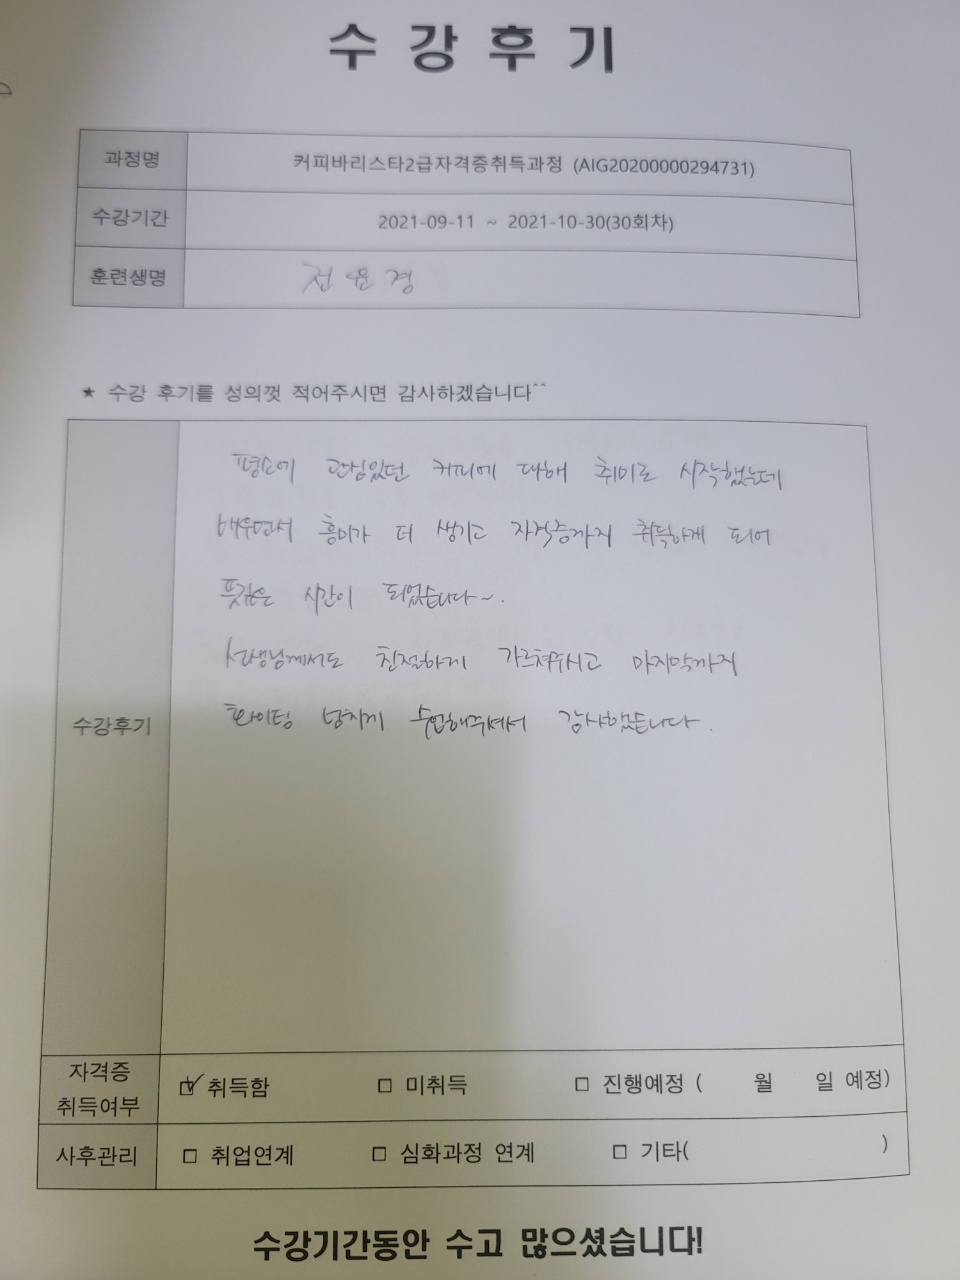 수 강 후 기
과정명 커피바리스타2급자격증취득과정 (AIG20200000294731)
수강기간 2021-09-11 ~ 2021-10-30(30회차)
훈련생명 전윤경
★ 수강 후기를 성의껏 적어주시면 감사하겠습니다^^
평소에 관심있던 커피에 대해 취미로 시작했는데
배우면서 흥미가 더 생기고 자격증까지 취득하게 되어
뜻깊은 시간이 되었습니다~.
선생님께서도 친절하게 가르쳐주시고 마지막까지
수강후기
화이팅 넘치게 수업해주셔서 감사했습니다.
자격증
취득여부
☑ 취득함 □ 미취득 □ 진행예정 ( 월 일 예정)
사후관리 □ 취업연계 □ 심화과정 연계 □ 기타( )
수강기간동안 수고 많으셨습니다!